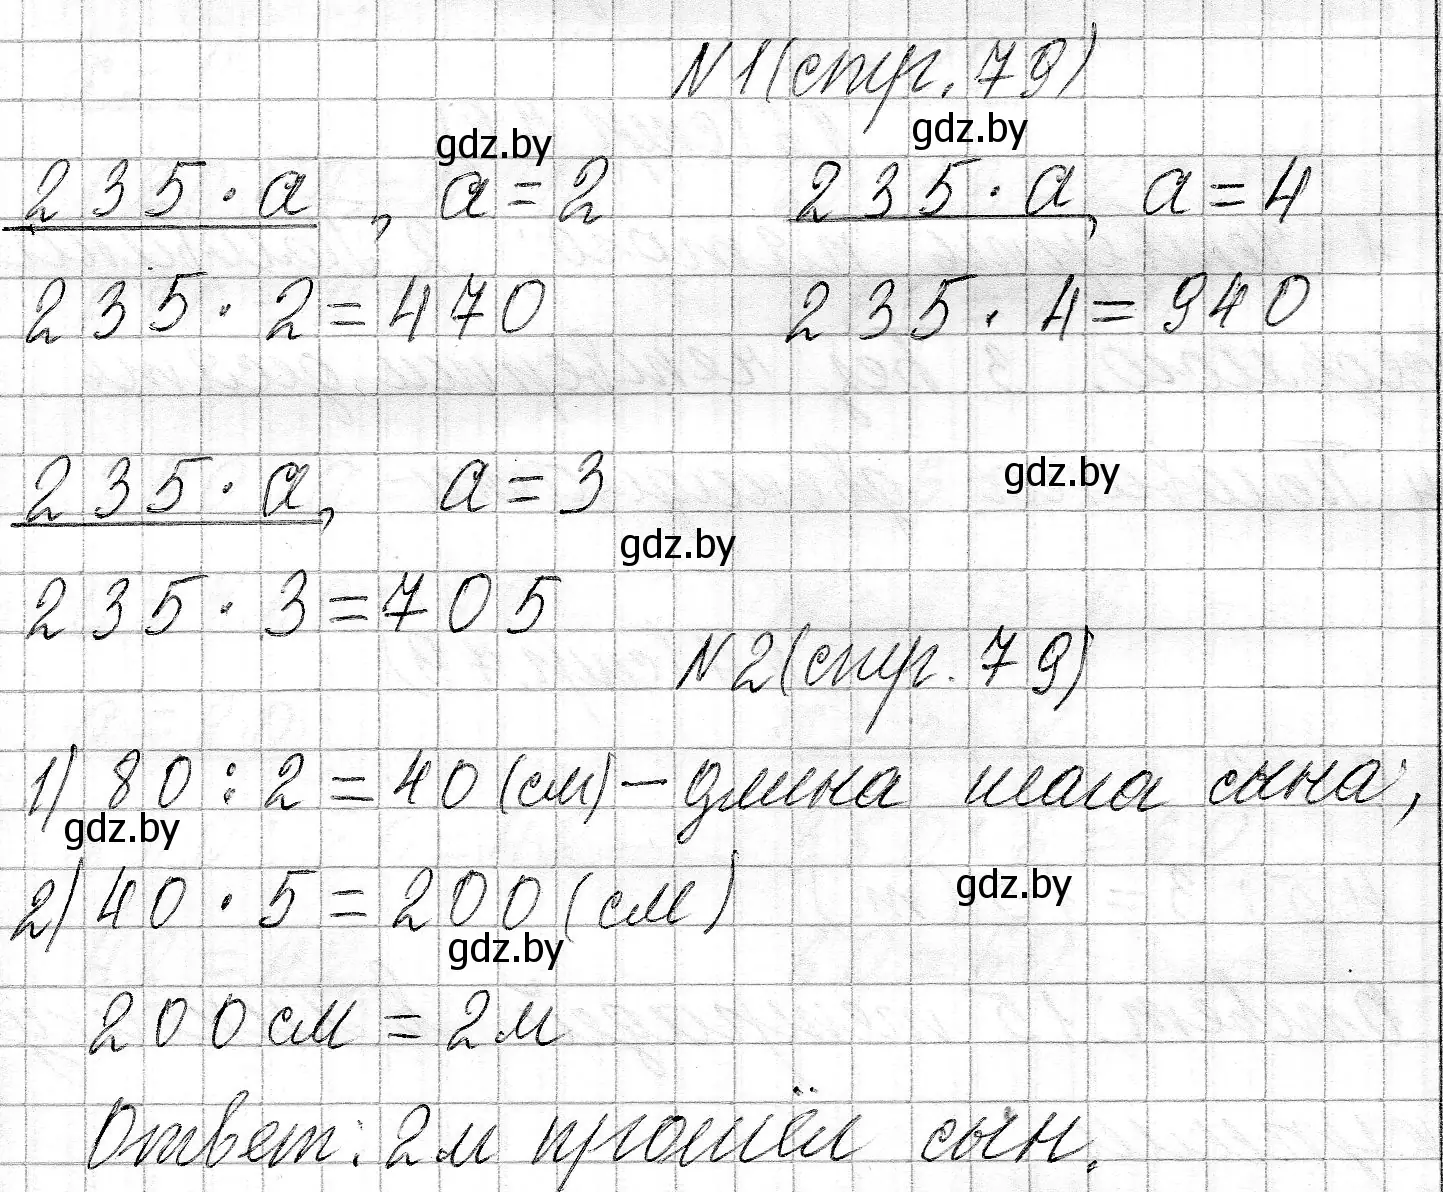 N1(стр. 79)
gdz.by gdz.by
235 · a , a = 2 235 · a, a = 4
235 · 2 = 470 235 · 4 = 940
235 · a, a = 3 gdz.by
gdz.by
235 · 3 = 705
N2(стр. 79)
1) 80 : 2 = 40 (см) – длина шага сына;
gdz.by
2) 40 · 5 = 200 (см) gdz.by
gdz.by
200 см = 2 м
Ответ: 2 м прошёл сын.